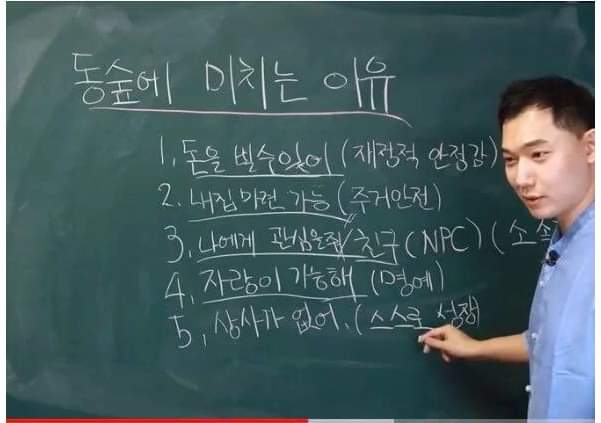 동숲에 미치는 이유
1. 돈을 벌수있어 (재정적 안정감)
2. 내집마련 가능 (주거안전)
3. 나에게 관심을줘/친구(NPC) (소속
4. 자랑이 가능해 (명예)
5, 상사가 없어. (스스로 성장)